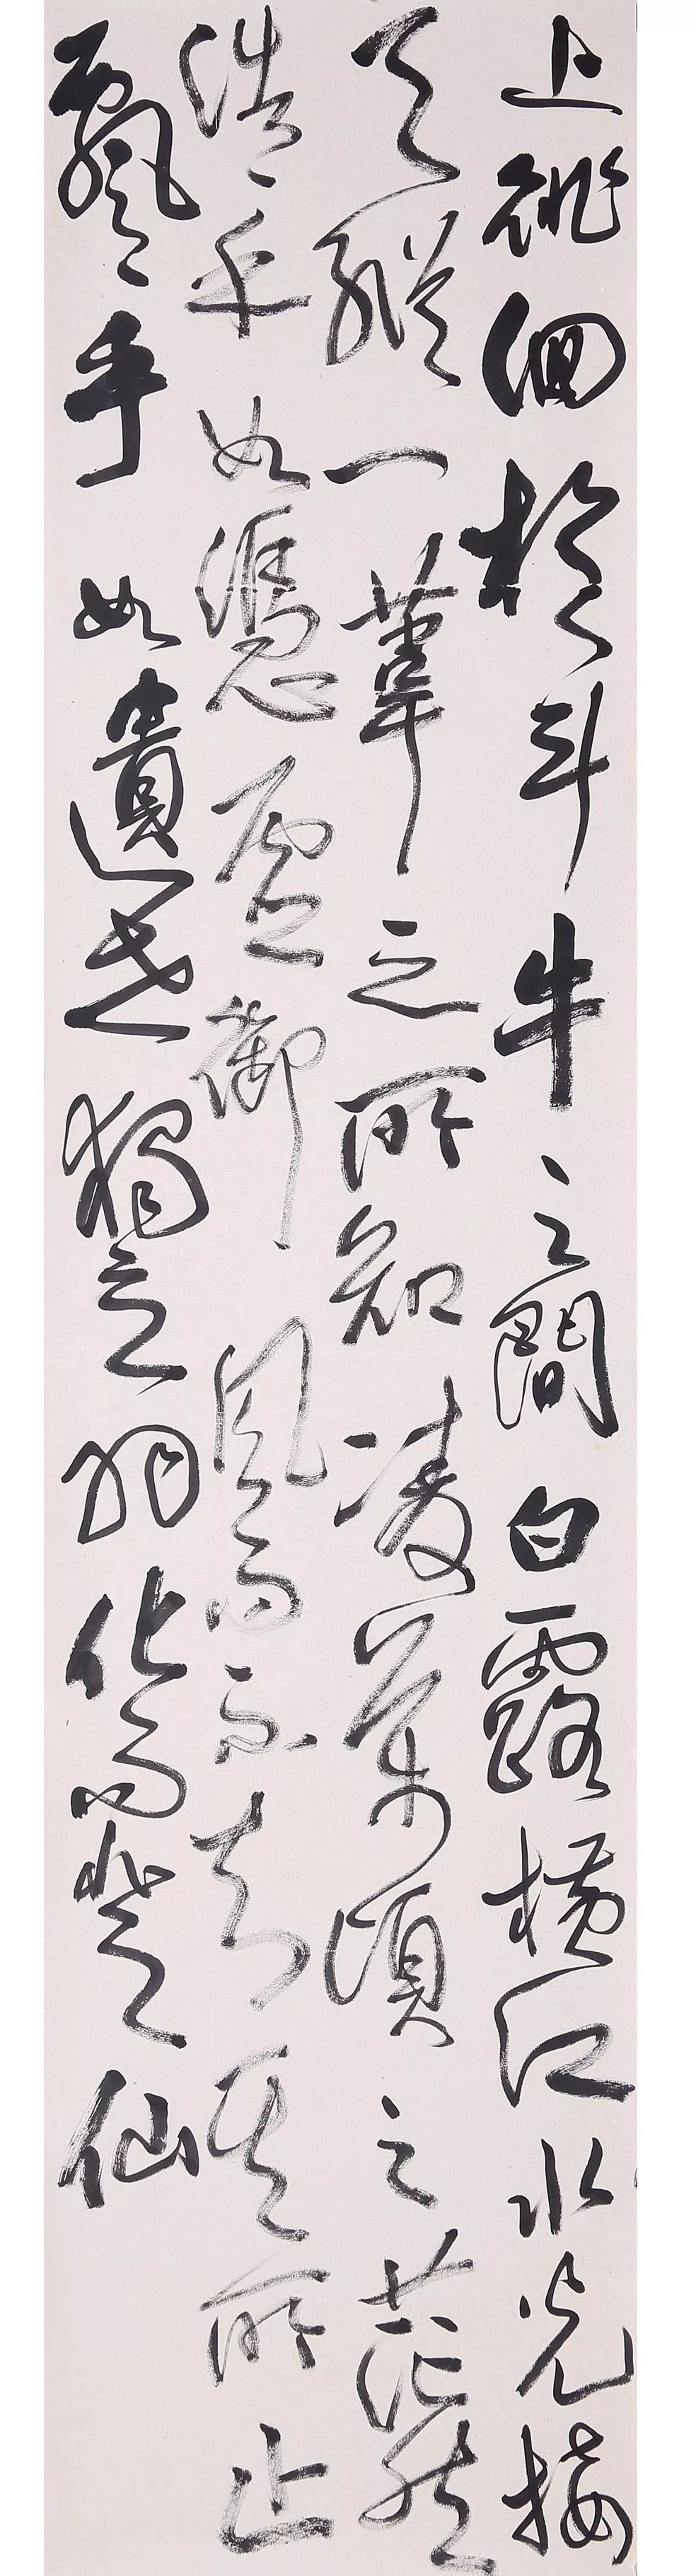 上徘徊於斗牛之間白露橫江水光接
天縱一葦之所知凌萬頃之茫然
浩〻乎如憑虛御風而不知其所止
飄〻乎如遺世獨立羽化而登仙